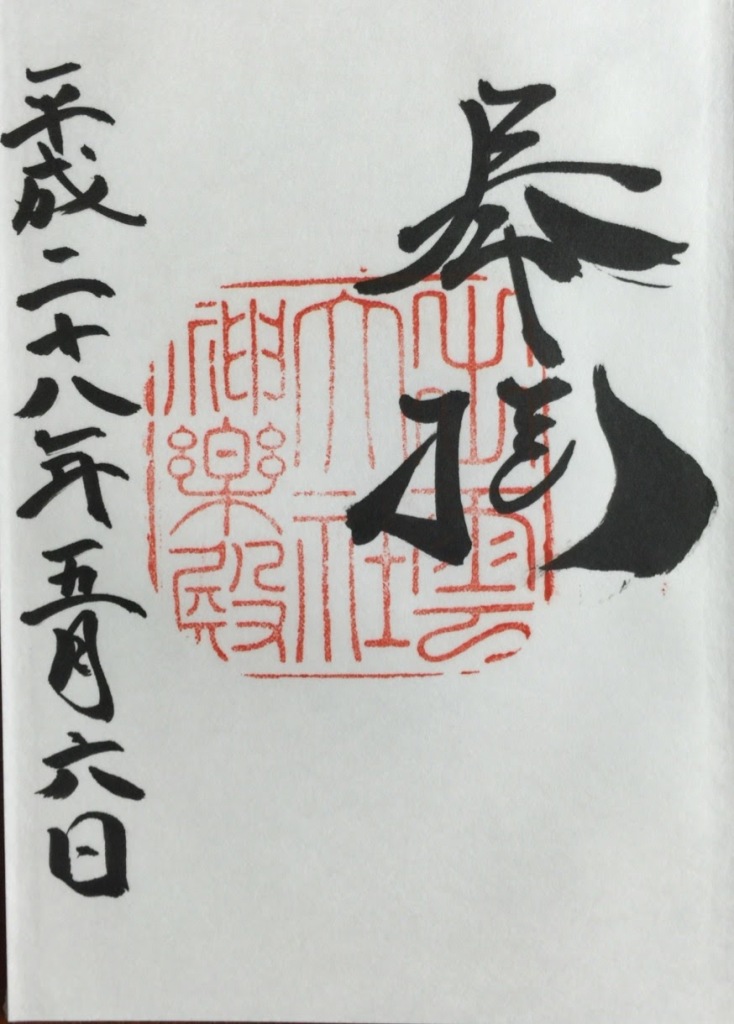 奉拝
出雲
大社
神楽殿
平成二十八年五月六日